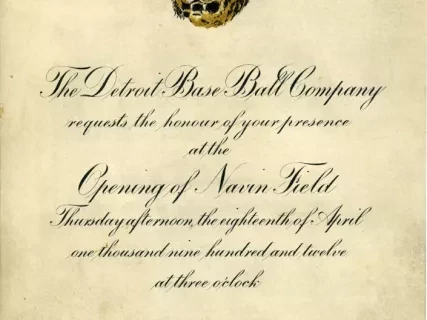 The Detroit Base Ball Company
requests the honour of your presence
at the
Opening of Navin Field
Thursday afternoon, the eighteenth of April
one thousand nine hundred and twelve
at three o'clock